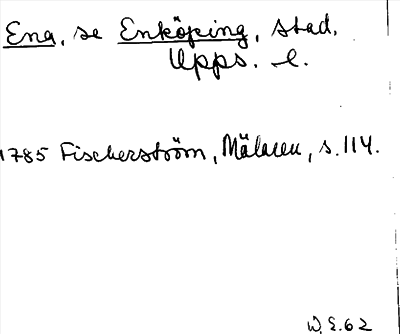 Ena, se Enköping, stad,
Upps. l.
1785 Fischerström, Mälaren, s. 114.
W.E. 62